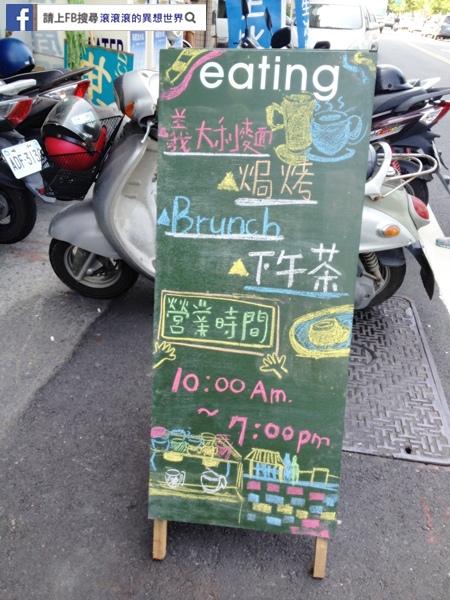 請上FB搜尋 滾滾滾的異想世界
eating
義大利麵
焗烤
Brunch
下午茶
營業時間
10:00 Am.
~ 7:00 pm